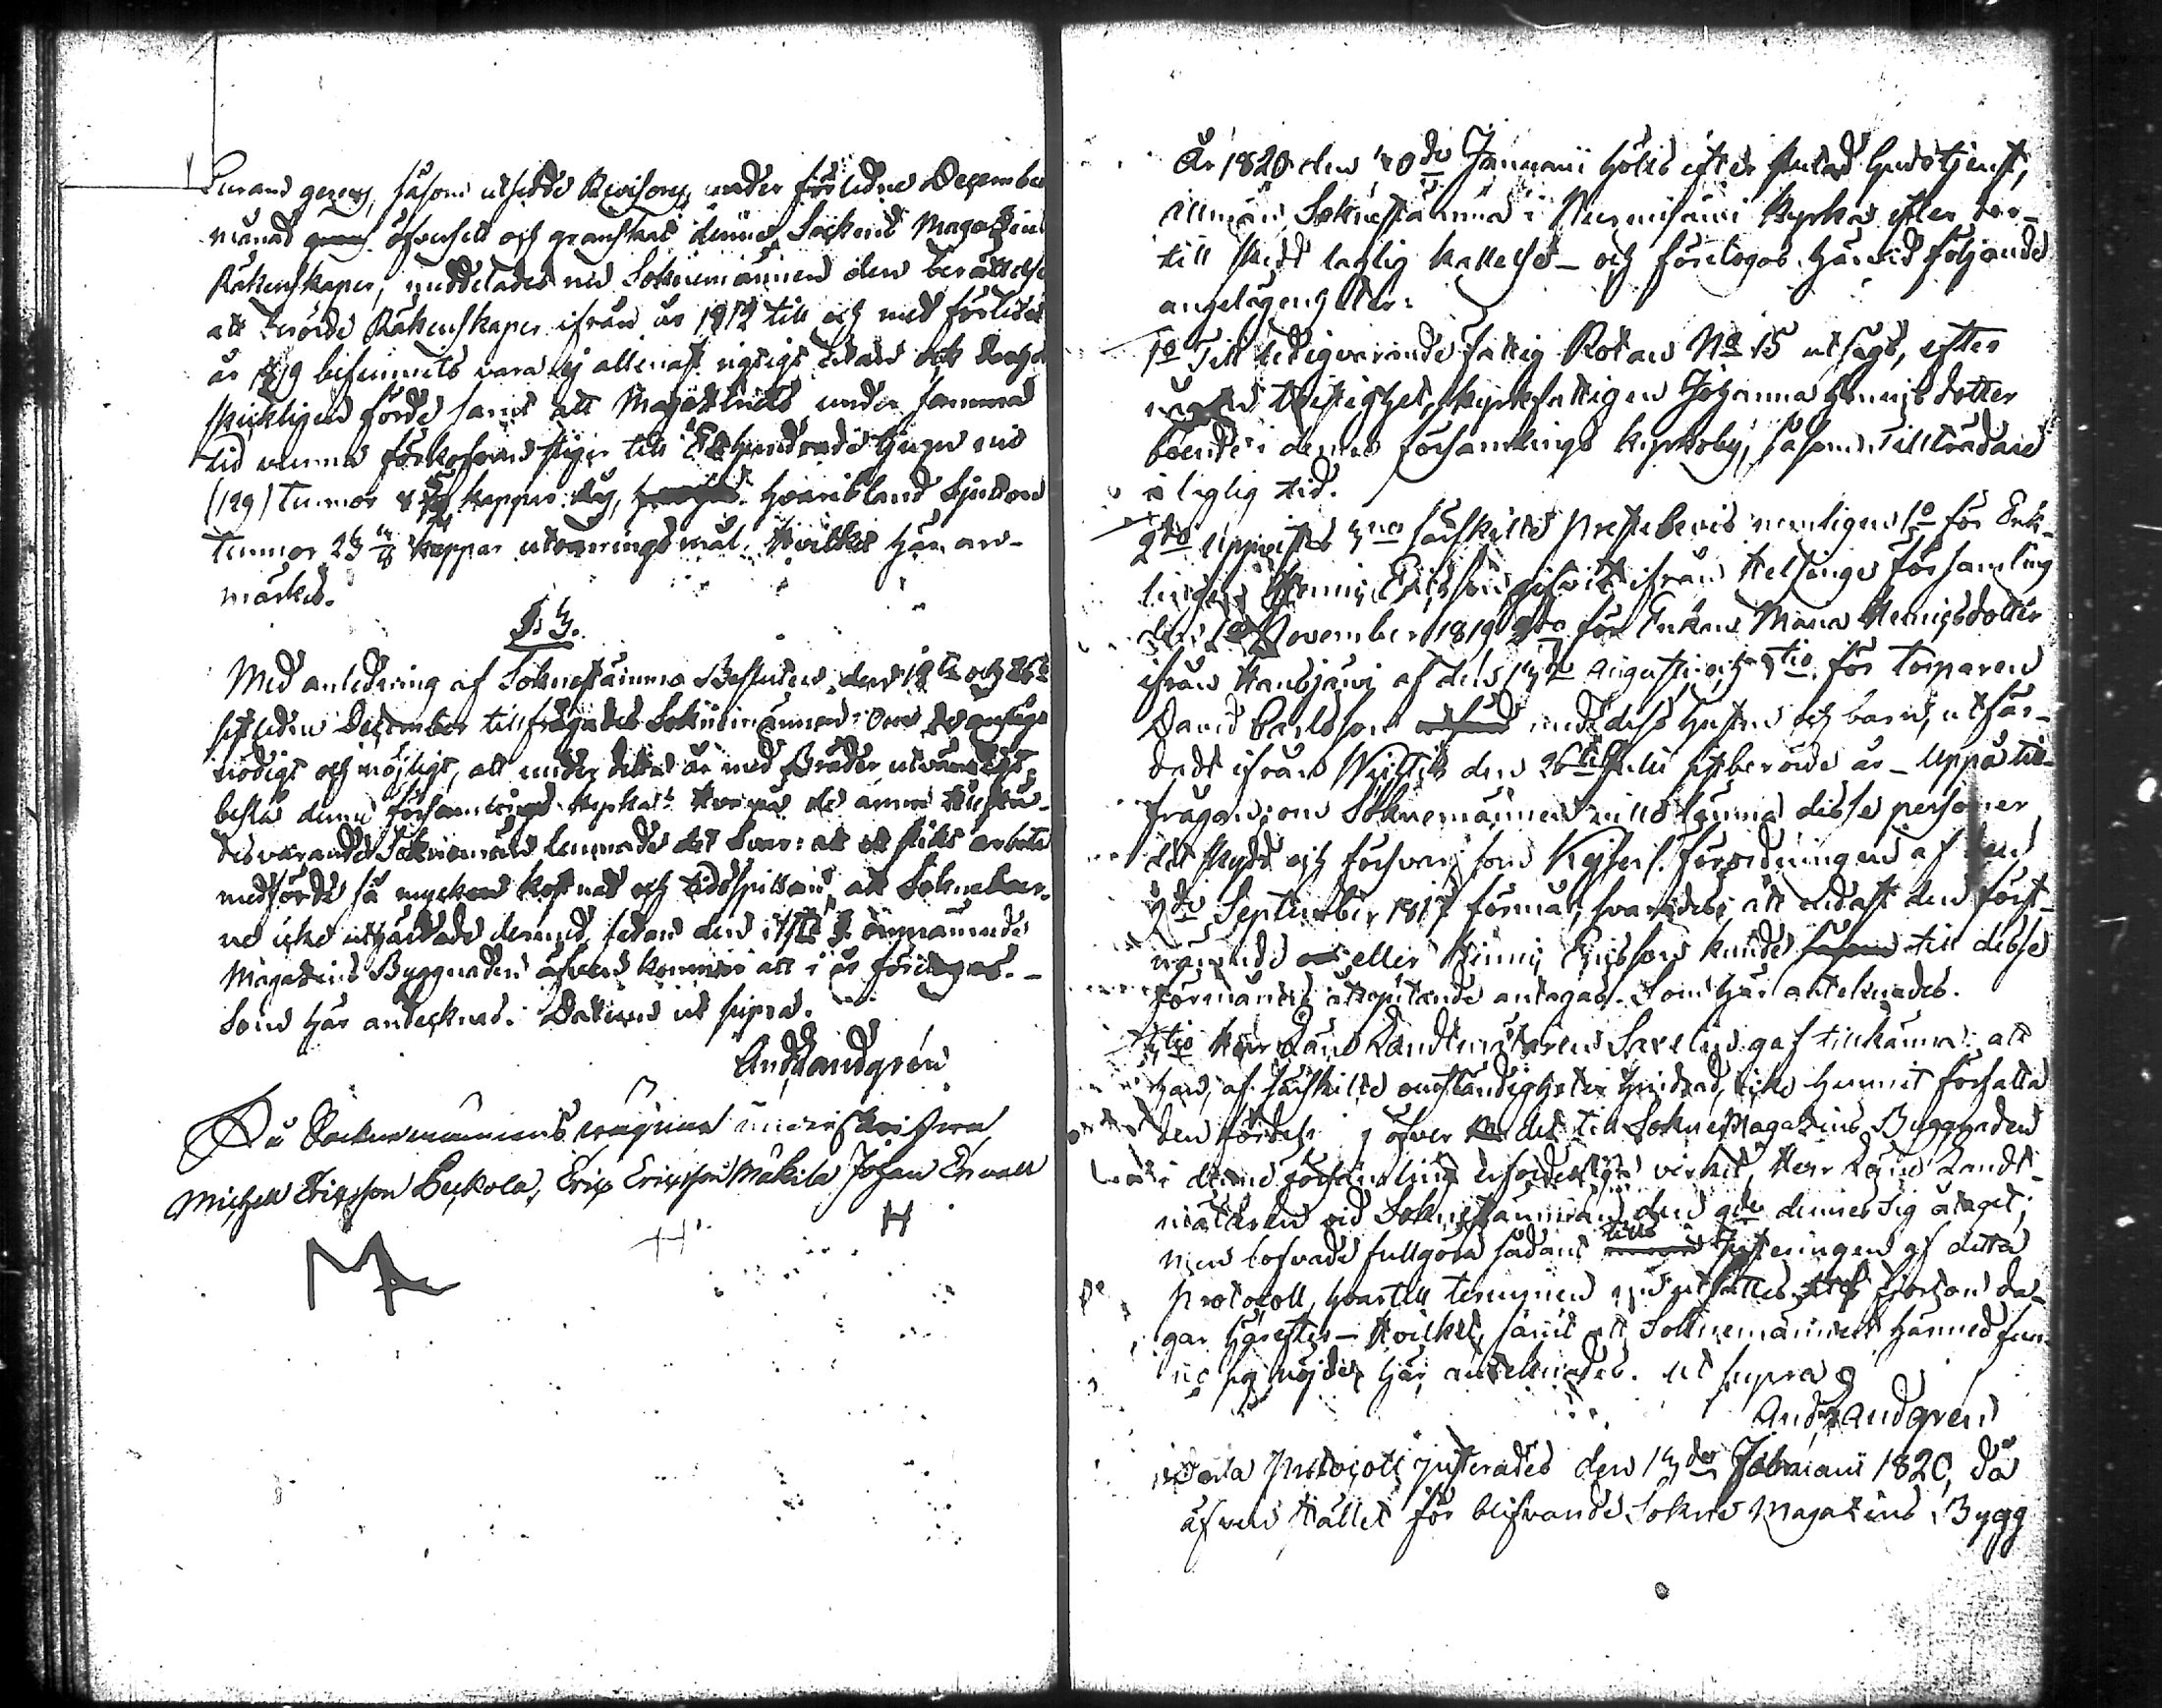 Lurand genom, såsom utsedde Revisorer, under förledne December
månad öfversett och granskat denne Sockens Magazins
Räkenskaper, meddelades nu Sokнemännen den berättelse
att berörde Räkenskaper ifrån år 1812 till och med förledet
år 1819 befunnits vara ej allenast rigtigt utan och
skickligen förde samt att Magazinets under samma
tid vunna förkofran stiger till Etthundrade tjugu nio
(129) Tunnor kappar Råg, hvaribland Sjutton
Tunnor 23 kappar utsäningsmål. Hvilket här an-
märkes.
§. 3.
Med anledning af Sokнestämmo Besluten den 12te och 26te
sistledne December tillfrågades Sokнemännen: om de ansågo
nödigt och möjligt, att under detta år med Bräder utvändigt
beslå denne församlings kyrka. Hvarpå de ännu tillstä-
desvarande Sokнemän lemnade det Svar: att ett slikt arbete
medförde så mycken kostnad och tidsspillan, att Sokнeboer-
ne icke uthärdade dermed, sedan den i 1sta §. omnämnde
Magazins Byggnaden äfven kommer att i år företagas. –
Som här antecknas. Datum ut supra.
And. Landgrén
På Sockнemännens vägnar underskrifva
Michell Ericsson Peckola, Eric Ericsson Mäkila Johan Enwall
År 1820 den 30de Januarii hölts efter slutad Gudstjenst,
allmän Sokнestämma i Nurmijärvi kyrka efter der-
till skedd laglig kallelse – och företogos härvid följande
angelägenheter:
1o Till ledigvarande fattig Rotan No 15 utsågs, efter
någon tvistighet, kyrkfattigen Johanna Henricsdotter
boende i denne församlings kyrkoby, såsom tillträdare
i laglig tid.
2do Uppvistes 3ne särskilte Prestebevis nemligen 1o för Enk-
lingen Henric Ericsson gifvit ifrån Helsinge församling
den November 1819 2do för Enkan Maria Henricsdotter
ifrån Hausjärvi af den 13de Augusti och 3tio för Torparen
David Carlsson med dess hustru och barn, utfär-
dadt ifrån Wichtis den 26te Julii sistberörde år – Uppå till-
frågan: om Sokнemännen ville lemna desse personer
det skydd och försvar, som Kejserl. förordningen af den
September 1817 förmår, svarades: att endast den först-
nämnde eller Henric Ericsson kunde till desse
förmåners åtnjutande antagas. Som här antecknades.
3tio Herr Låne Landtmätaren Sarelius gaf tillkänna: att
han, af särskilte omständigheter hindrad, icke hunnit författa
den fördeln. öfver det till Sokнe Magazins Byggnaden
i denne församling erforderliga virket, Herr Låne Landt-
mätaren vid Sokнestämman den 9de dennes sig åtagit;
men lofvade fullgöra sådant till Justeringen af detta
Protocoll, hvartill terminen nu utsattes fjorton da-
gar härefter – Hvilket, samt att Sokнemännen härmed fun-
no sig nöjde, här antecknades. ut supra
And. Landgren
Detta Protocoll justerades den 13de Februarii 1820, då
äfven stället för blifvande Sokнe Magazins Bygg